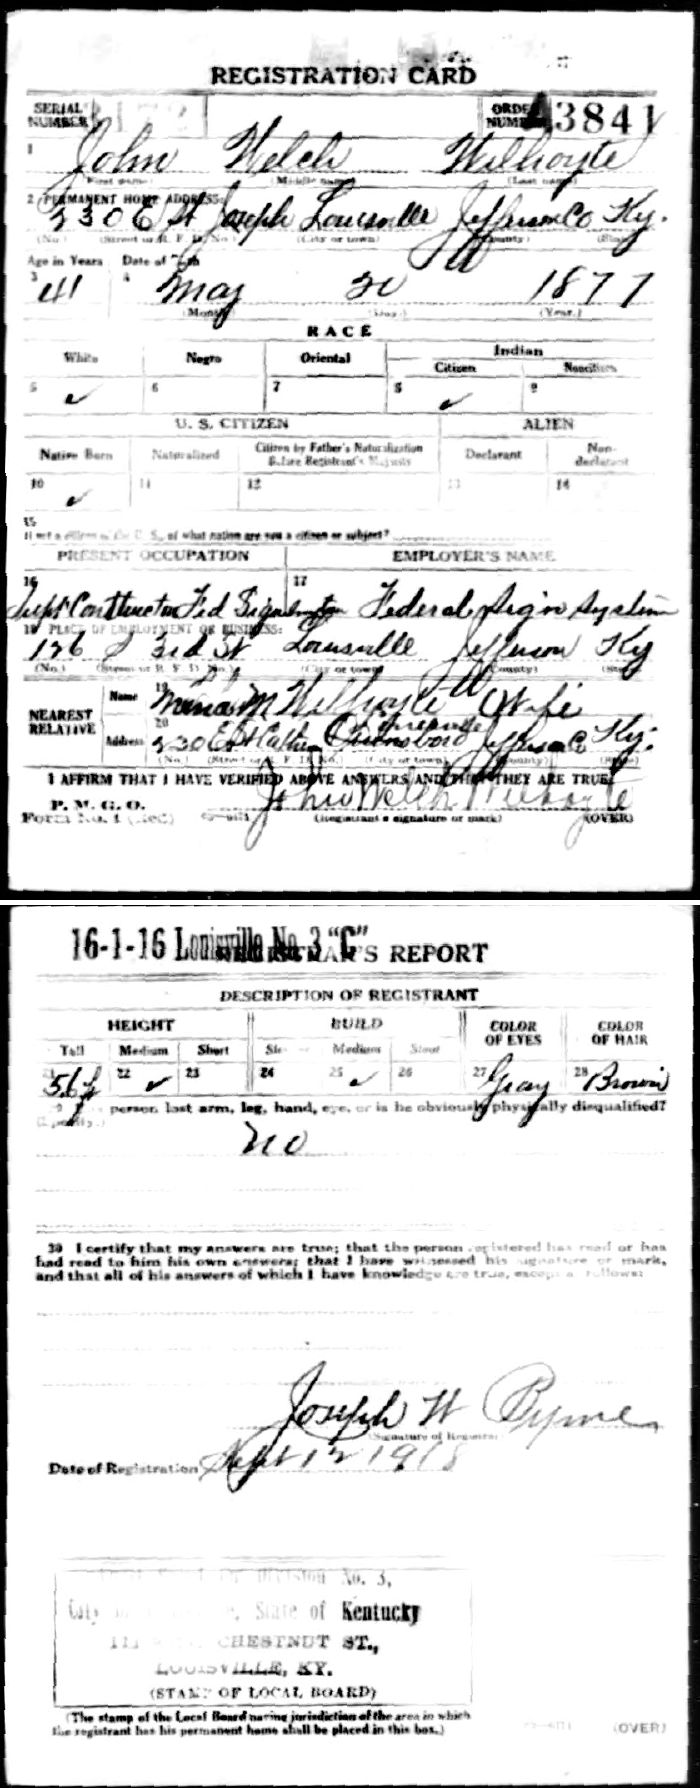 REGISTRATION CARD
SERIAL NUMBER ORDER NUMBER 3841
1 John Welch Wilhoyte
(First name) (Middle name) (Last name)
2 PERMANENT HOME ADDRESS:
230 E St Joseph Louisville Jefferson Co Ky.
(No.) (Street or R. F. D. No.) (City or town) (County) (State)
Age in Years Date of Birth
3 41 4 May 20 1877
(Month) (Day.) (Year.)
RACE
White Negro Oriental Indian
Citizen Noncitizen
5 ✓ 6 7 8 ✓ 9
U. S. CITIZEN ALIEN
Native Born Naturalized Citizen by Father's Naturalization Before Registrant's Majority Declarant Non-declarant
10 ✓ 11 12 13 14
15
If not a citizen of the U. S., of what nation are you a citizen or subject?
PRESENT OCCUPATION EMPLOYER'S NAME
16 17
Supt Fed Federal Sign System
18 PLACE OF EMPLOYMENT OR BUSINESS:
126 S 3rd St Louisville Jefferson Ky
(No.) (Street or R. F. D. No.) (City or town) (County) (State)
NEAREST RELATIVE
Name 19 M Wilhoyte Wife
Address 20 230 E St Jefferson Co Ky.
(No.) (Street or R. F. D. No.) (City or town) (County) (State)
I AFFIRM THAT I HAVE VERIFIED ABOVE ANSWERS AND THAT THEY ARE TRUE
P. M. G. O.
John Welch Wilhoyte
Form No. 1 (Red) (Registrant's signature or mark) (OVER)
16-1-16 Louisville No. 3 "C"
REGISTRAR'S REPORT
DESCRIPTION OF REGISTRANT
HEIGHT BUILD COLOR OF EYES COLOR OF HAIR
Tall Medium Short Slender Medium Stout
21 22 ✓ 23 24 25 ✓ 26 27 Gray 28 Brown
29 person lost arm, leg, hand, eye, or is he obviously physically disqualified?
(Specify.)
no
30 I certify that my answers are true; that the person registered has read or has
had read to him his own answers; that I have witnessed his signature or mark,
and that all of his answers of which I have knowledge are true, except as follows:
Joseph W Byrne
(Signature of Registrar)
Date of Registration Sept 12 1918
Division No. 3,
City State of Kentucky
CHESTNUT ST.,
LOUISVILLE, KY.
(STAMP OF LOCAL BOARD)
(The stamp of the Local Board having jurisdiction of the area in which
the registrant has his permanent home shall be placed in this box.)
(OVER)